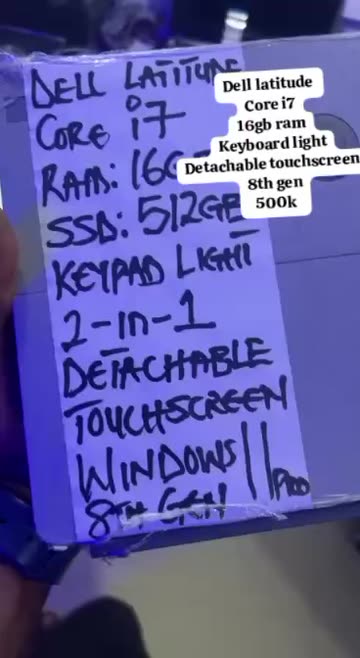 DELL LATITUDE
CORE i7
RAM: 16G
SSD: 512GB
KEYPAD LIGHT
2-in-1
DETACHABLE
TOUCHSCREEN
WINDOWS 11 PRO
8TH GEN
Dell latitude
Core i7
16gb ram
Keyboard light
Detachable touchscreen
8th gen
500k